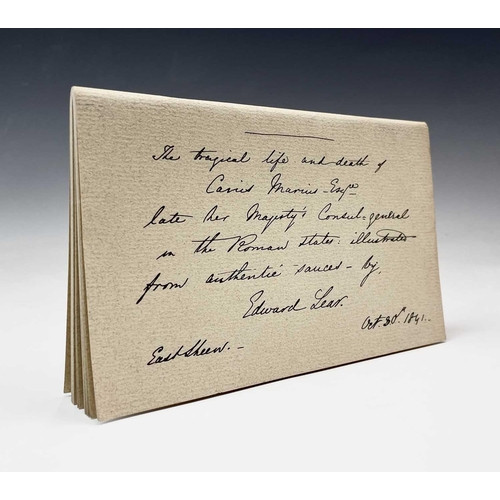 The tragical life and death of
Caius Marius - Esqre
late her Majesty's Consul=general
in the Roman states: illustrated
from authentic sauces - by,
Edward Lear.
Oct. 30th 1841..
East Sheen. -